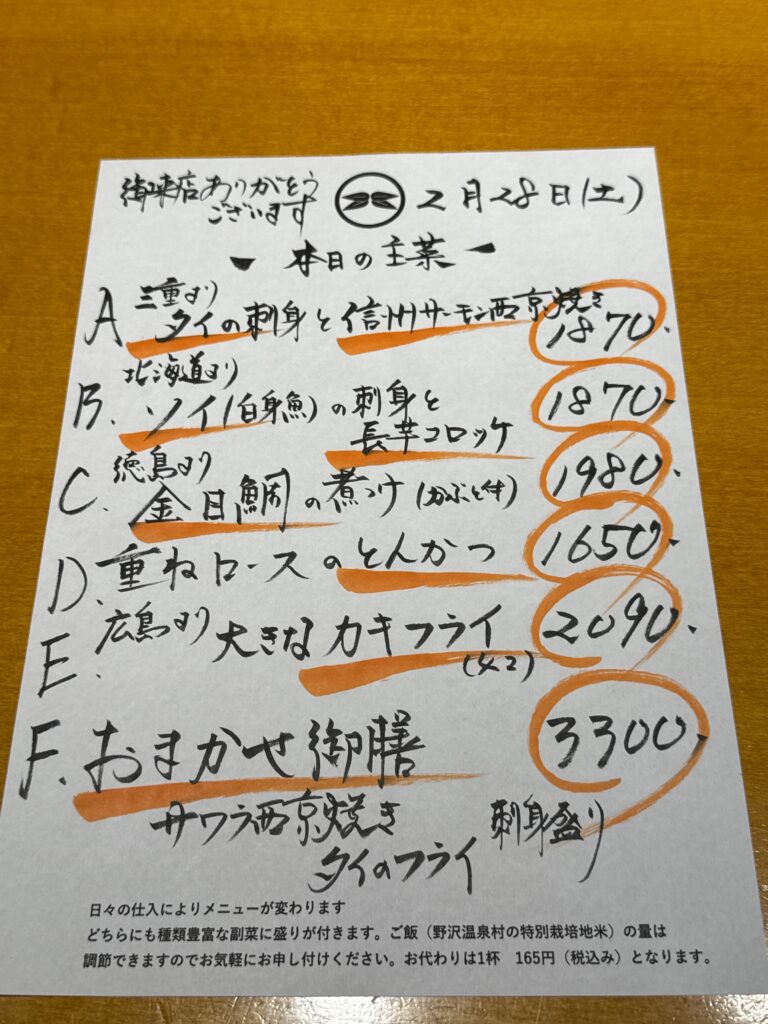 御来店ありがとう
ございます
2月28日(土)
本日の主菜
A 三重より
タイの刺身と信州サーモン西京焼き 1870.
北海道より
B. ソイ(白身魚)の刺身と
長芋コロッケ 1870.
徳島より
C. 金目鯛の煮つけ(かぶと付) 1980.
D. 重ねロースのとんかつ 1650.
広島より
E. 大きなカキフライ 2090.
F. おまかせ御膳 3300.
サワラ西京焼き 刺身盛り
タイのフライ
日々の仕入によりメニューが変わります
どちらにも種類豊富な副菜に盛りが付きます。ご飯(野沢温泉村の特別栽培地米)の量は
調節できますのでお気軽にお申し付けください。お代わりは1杯 165円(税込み)となります。